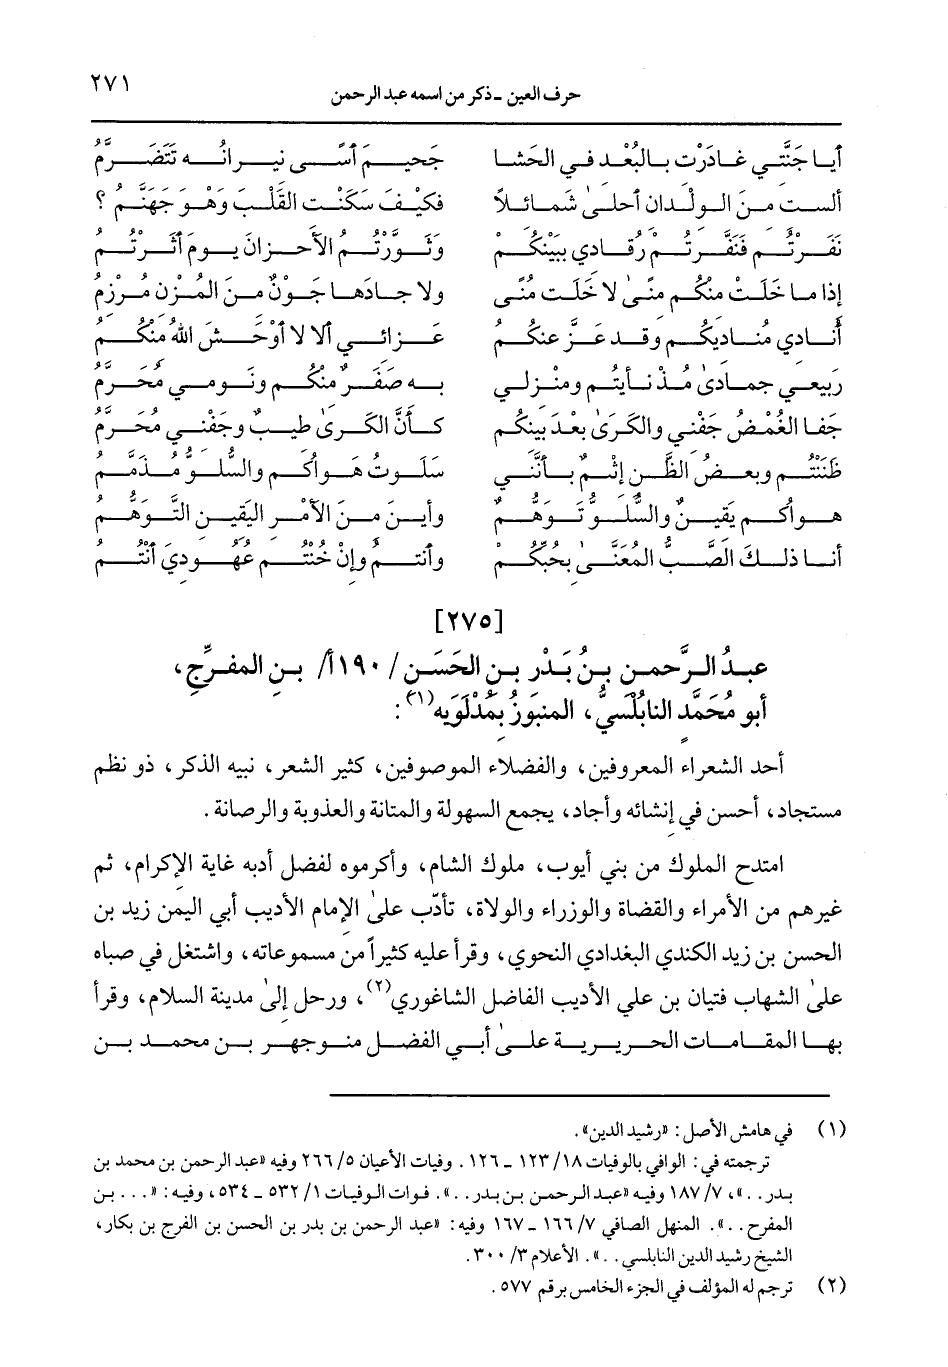 حرف العين - ذكر من اسمه عبد الرحمن ٢٧١
أيا جَنَّتي غادَرْت بالبُعْد في الحَشا جَحيم أسًى نيرانه تتَضَرَّمُ
ألست من الولْدان أحلىٰ شَمائلاً فكيْفَ سَكَنْت القَلْبَ وهْو جَهَنَّمُ ؟
نفَرتُم فنَفَّرتُم رُقادي ببَينكُم وثَورتُم الأحزانَ يوم أثَرتُم
إذا ما خَلَتْ منكُم منًىٰ لا خَلَت منًى ولا جادَها جَوْنٌ من المُزن مُرزمُ
أُنادي مُناديكُم وقد عَزَّ عنكُمُ عَزائي ألا لا أوْحَشَ اللهُ منكُم
رَبيعي جمادىٰ مُذْ نأيتُم ومنزلي به صَفَرٌ منكُم ونومي مُحَرَّمُ
جَفا الغُمْضُ جَفْني والكَرىٰ بعْدَ بينكُم كأنَّ الكَرىٰ طيبٌ وجَفْني مُحَرَّمُ
ظَنَنْتُم وبعضُ الظَّن إثْمٌ بأنَّني سَلَوتُ هواكُم والسُلوُّ مُذَمَّمُ
هواكُم يقينٌ والسُّلوُّ تَوهُّمٌ وأينَ من الأمْر اليَقين التَّوهُّمُ
أنا ذلكَ الصَّبُّ المُعَنَّىٰ بحُبّكُمْ وأنتُم وإنْ خُنْتُم عُهودي أنْتُم
[٢٧٥]
عبدُ الرَّحمن بنُ بَدْر بن الحَسَن /١٩٠أ/ بن المفرِّج،
أبو مُحَمَّد النابُلُسيُّ، المنبوزُ بمَدْلَوَيه(١):
أحد الشعراء المعروفين، والفضلاء الموصوفين، كثير الشعر، نبيه الذكر، ذو نظم
مستجاد، أحسن في إنشائه وأجاد، يجمع السهولة والمتانة والعذوبة والرصانة.
امتدح الملوك من بني أيوب، ملوك الشام، وأكرموه لفضل أدبه غاية الإكرام، ثم
غيرهم من الأمراء والقضاة والوزراء والولاة، تأدّب علىٰ الإمام الأديب أبي اليمن زيد بن
الحسن بن زيد الكندي البغدادي النحوي، وقرأ عليه كثيراً من مسموعاته، واشتغل في صباه
علىٰ الشهاب فتيان بن علي الأديب الفاضل الشاغوري(٢)، ورحل إلىٰ مدينة السلام، وقرأ
بها المقامات الحريرية علىٰ أبي الفضل منوجهر بن محمد بن
(١) في هامش الأصل: «رشيد الدين».
ترجمته في: الوافي بالوفيات ١٨/ ١٢٣ - ١٢٦. وفيات الأعيان ٥/ ٢٦٦ وفيه «عبد الرحمن بن محمد بن
بدر..»، ٧/ ١٨٧ وفيه «عبد الرحمن بن بدر..». فوات الوفيات ١/ ٥٣٢ - ٥٣٤، وفيه: «... بن
المفرح..». المنهل الصافي ٧/ ١٦٦ - ١٦٧ وفيه: «عبد الرحمن بن بدر بن الحسن بن الفرج بن بكار،
الشيخ رشيد الدين النابلسي..». الأعلام ٣/ ٣٠٠.
(٢) ترجم له المؤلف في الجزء الخامس برقم ٥٧٧.